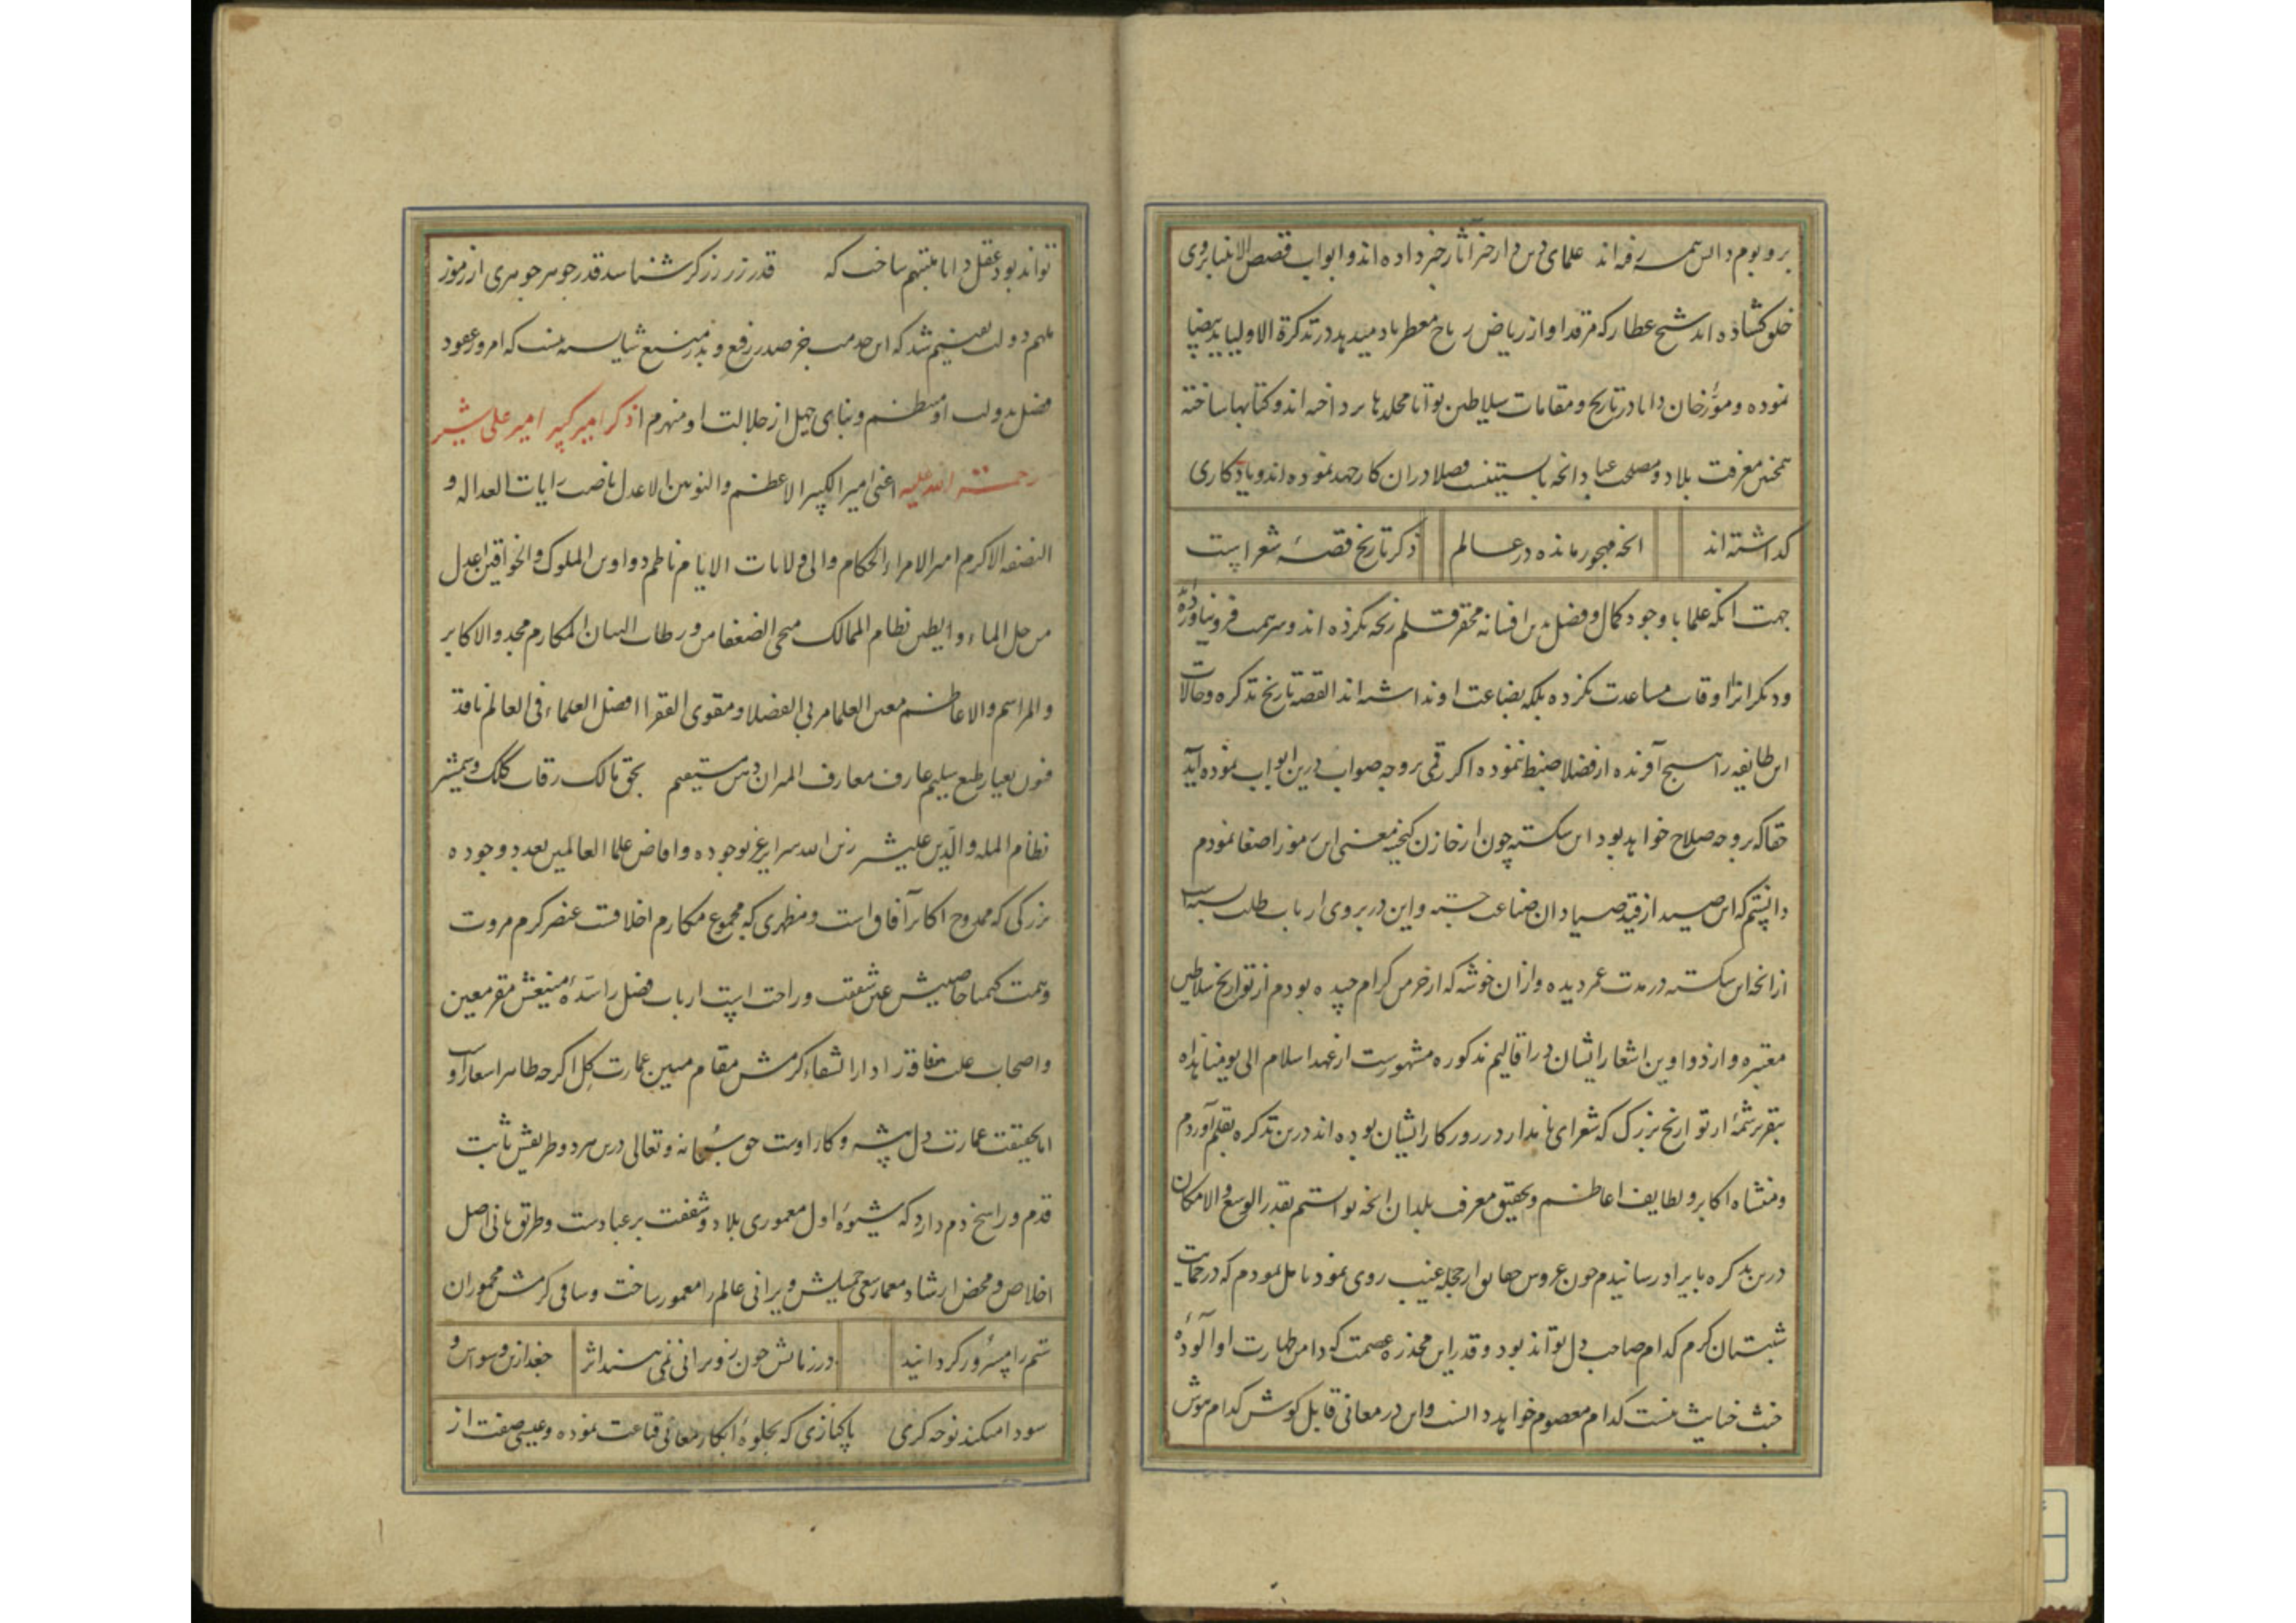 بر و بوم دانش همه رفته‌اند علمای دین در اخبار آثار خبر داده‌اند و ابواب قصص الانبیا بر روی
خلق گشاده‌اند شیخ عطار که مرقد او از ریاض ریاح معطر باد میدهد در تذکرة الاولیا ید بیضا
نموده و مورّخان دانا در تاریخ و مقامات سلاطین توانا مجلدها پرداخته‌اند و کتابها ساخته
همچنین معرفت بلاد و مصلحت عباد انچه بایستنست فضلا در آن کار جهد نموده‌اند و یادکاری
کذاشته‌اند انچه مهجور مانده در عالم ذکر تاریخ قصهٔ شعراست
جهت انکه علما با وجود کمال و فضل بدین افسانه محقر قلم رنجه نکرده‌اند و سر همت فرو نیاورده
و دیکرانرا اوقات مساعدت نکرده بلکه بضاعت او نداشته‌اند القصه تاریخ تذکره و حالات
این طایفه را هیچ آفریده از فضلا ضبط ننموده اکر رقمی بر وجه صواب درین ابواب نموده آید
حقا که بر وجه صلاح خواهد بود این شکسته چون از خازن کنجینه معنی این رموز اصغا نمودم
دانستم که این صید از قید صیادان صناعت جسته و این در بر روی ارباب طلب بسته است
از انچه این شکسته در مدت عمر دیده و از ان خوشه که از خرمن کرام چیده بودم از تواریخ سلاطین
معتبره و از دواوین اشعار ایشان در اقالیم مذکوره مشهورست از عهد اسلام الی یومنا هذا
بتقریر شمهٔ از تواریخ بزرک که شعرای نامدار در روزکار ایشان بوده‌اند درین تذکره بقلم آوردم
و منشاه اکابر و لطایف اعاظم و تحقیق معرفت بلدان انچه توانستم بقدر الوسع و الامکان
درین تذکره بایراد رسانیدم چون عروس جهانی از حجله غیب روی نمود تامل نمودم که در حمایت
شبستان کرم کدام صاحب دل تواند بود و قدر این مخدره عصمت که دامن طهارت او آلودهٔ
خبث خبایث نیست کدام معصوم خواهد دانست و این در معانی قابل کوش کدام هوش
تواند بود عقل دانا متنبهم ساخت که قدر زر زرکر شناسد قدر جوهر جوهری از رموز
ملهم دولت تفهیم شد که این خدمت جز صدر رفیع و بدر منیع شایسته نیست که امروز عقود
فضل بدولت او منتظم و بنای جهل از جلالت او منهدم ذکر امیر کبیر امیر علی شیر
رحمة الله علیه اعنی امیر الکبیر الاعظم والنوین الاعدل ناصب رایات العداله و
النصفه الاکرم امیر الامراء الحکام والی ولایات الایام ناظم دواوین الملوک و الخواقین اعدل
من جل الماء و الطین نظام الممالک منجی الضعفا من ورطات المکارم مجد و الاکابر
و المراسم و الاعاظم معین العلما مربی الفضلا و مقوی الفقرا افضل العلماء فی العالم ناقد
فنون بعیار طبع سلیم عارف معارف ذهن مستقیم بحق مالک رقاب کلک و شمشیر
نظام المله و الدین علیشیر زین الله بوجوده و افاض علی العالمین وجوده
بزرکی که ممدوح اکابر آفاق است و مظهری که مجموع مکارم اخلاقست عنصر کرم مروت
و همت کیمیا خاصیتش عین شفقت و راحت است ارباب فضل را سدّهٔ منیعش مقر معین
و اصحاب علت و فاقه را دار الشفاء کرمش مقام مبین عمارت کل اکرچه ظاهرا شعار او
اما بحقیقت عمارت دل پیشه و کار اوست حق سبحانه و تعالی درین هر دو طریقش ثابت
قدم و راسخ دم دارد که شیوهٔ اول معموری بلاد و شفقت بر عبادست و طریق ثانی اصل
اخلاص و محض ارشاد معمار سعی جمیلش ویرانی عالم را معمور ساخت و ساقی کرمش مخموران
ستم را مسرور کردانید در زمانش چون ز ویرانی نمی‌بیند اثر جغد ازین وسواس و
سودا میکند نوحه کری پاکبازی که بجلوهٔ ابکار معانی قناعت نموده و عیسی صفت از